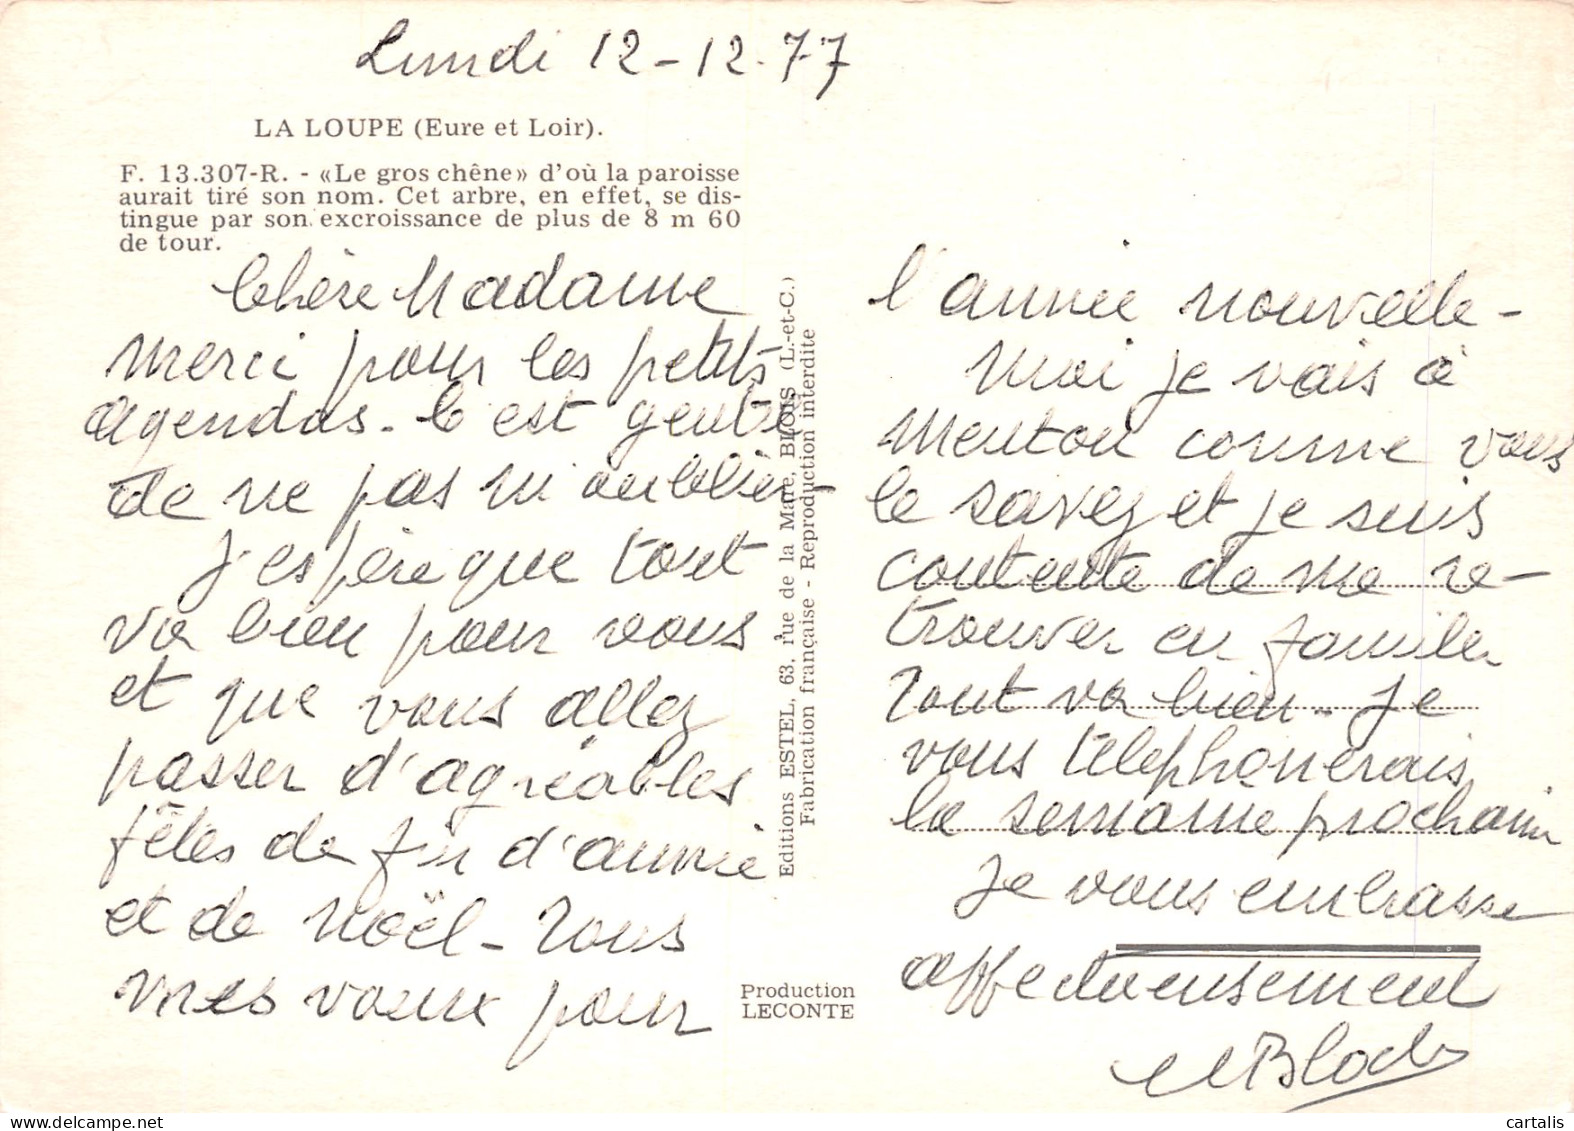 Lundi 12-12.77
LA LOUPE (Eure et Loir).
F. 13.307-R. - «Le gros chêne» d'où la paroisse
aurait tiré son nom. Cet arbre, en effet, se dis-
tingue par son excroissance de plus de 8 m 60
de tour.
Chère Madame
merci pour les petits
agendas. C'est gentil
de ne pas m'oublier-
J'espère que tout
va bien pour vous
et que vous allez
passer d'agréables
fêtes de fin d'année
et de Noël - Tous
mes vœux pour
Editions ESTEL, 63, rue de la Mare, BLOIS (L.-et-C.)
Fabrication française - Reproduction interdite
Production
LECONTE
l'année nouvelle -
Moi je vais à
Menton comme vous
le savez et je suis
contente de me re-
trouver en famille
Tout va bien - Je
vous téléphonerais
la semaine prochaine
Je vous embrasse
affectueusement
Bloch
cartalis